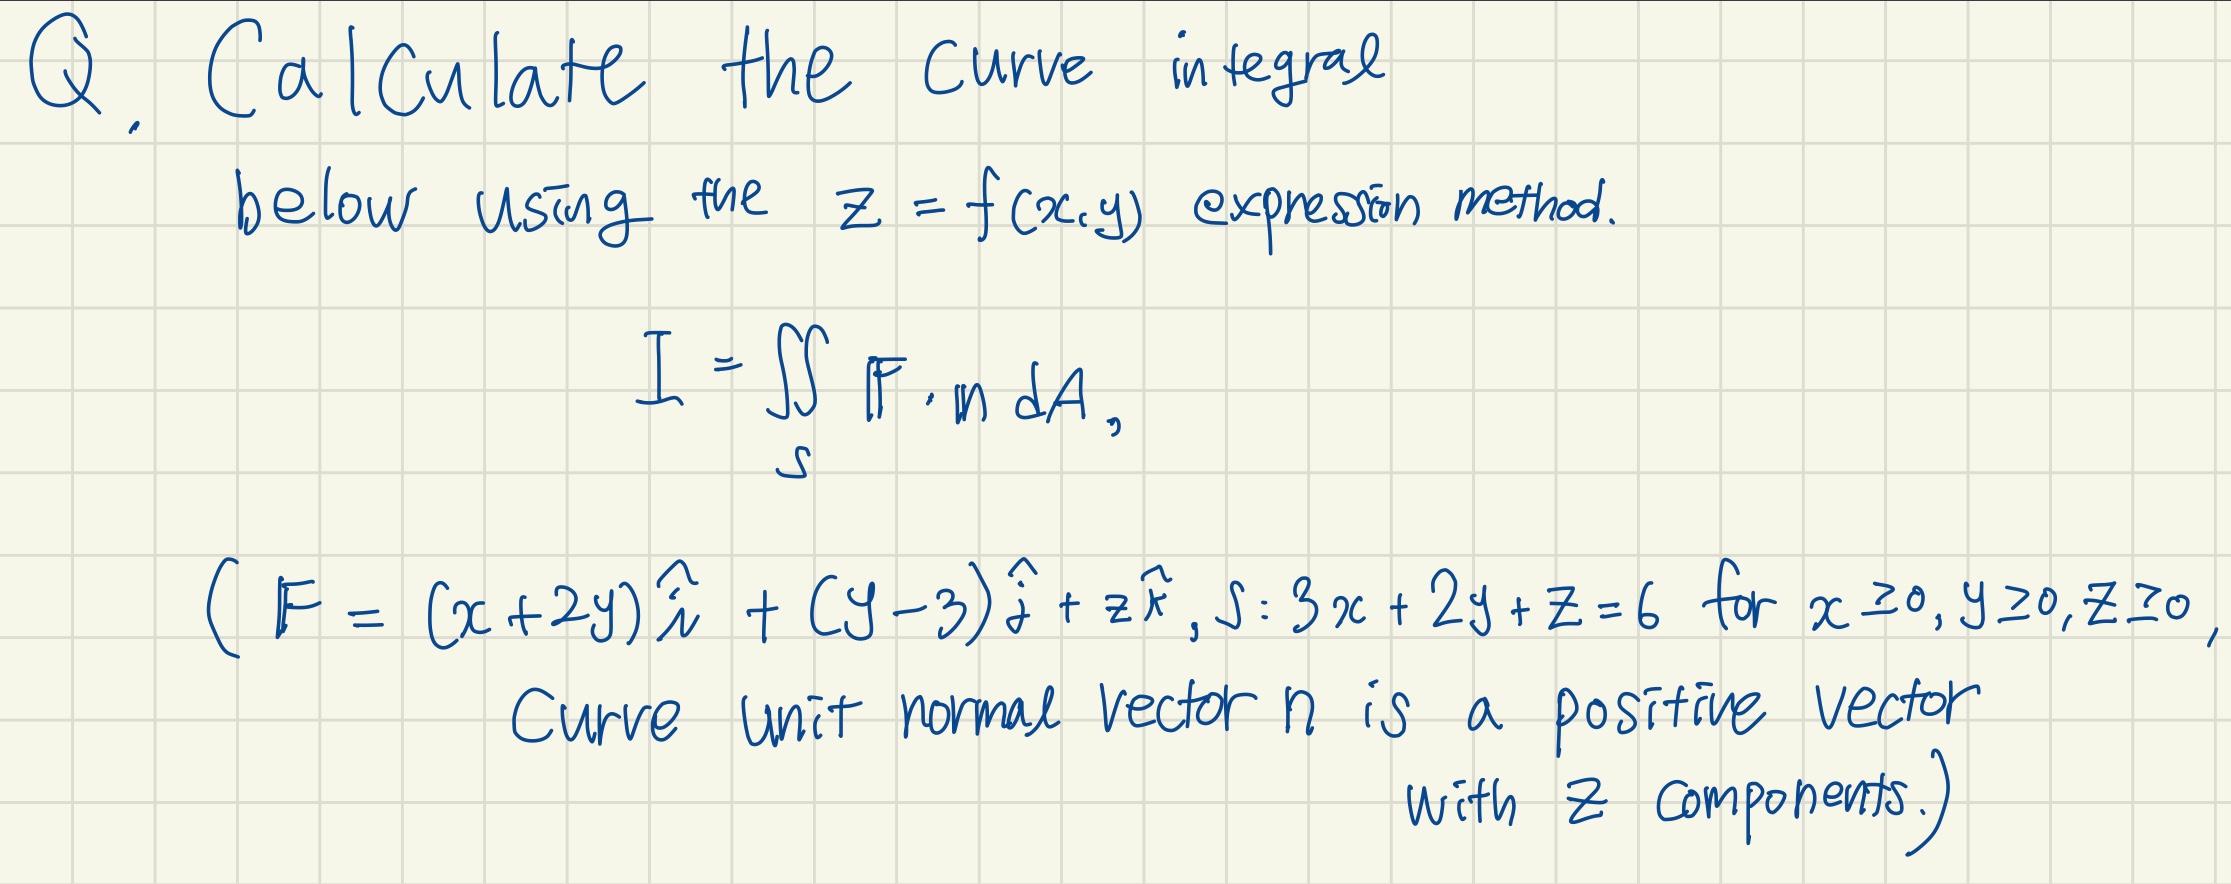 Q. Calculate the curve integral
below using the z = f(x,y) expression method.
I = ∬_S 𝔽·𝕟 dA,
(𝔽 = (x+2y)î + (y-3)ĵ + zk̂, S: 3x+2y+z=6 for x≥0, y≥0, z≥0,
Curve unit normal vector n is a positive vector
with z components.)